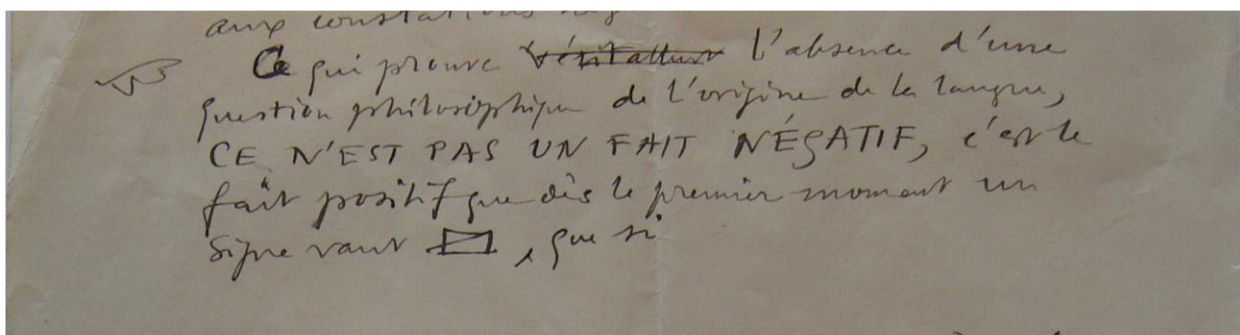 aux constatations
Ce qui prouve l'absence d'une
question philosophique de l'origine de la langue,
CE N'EST PAS UN FAIT NÉGATIF, c'est le
fait positif que dès le premier moment un
signe vaut , que si